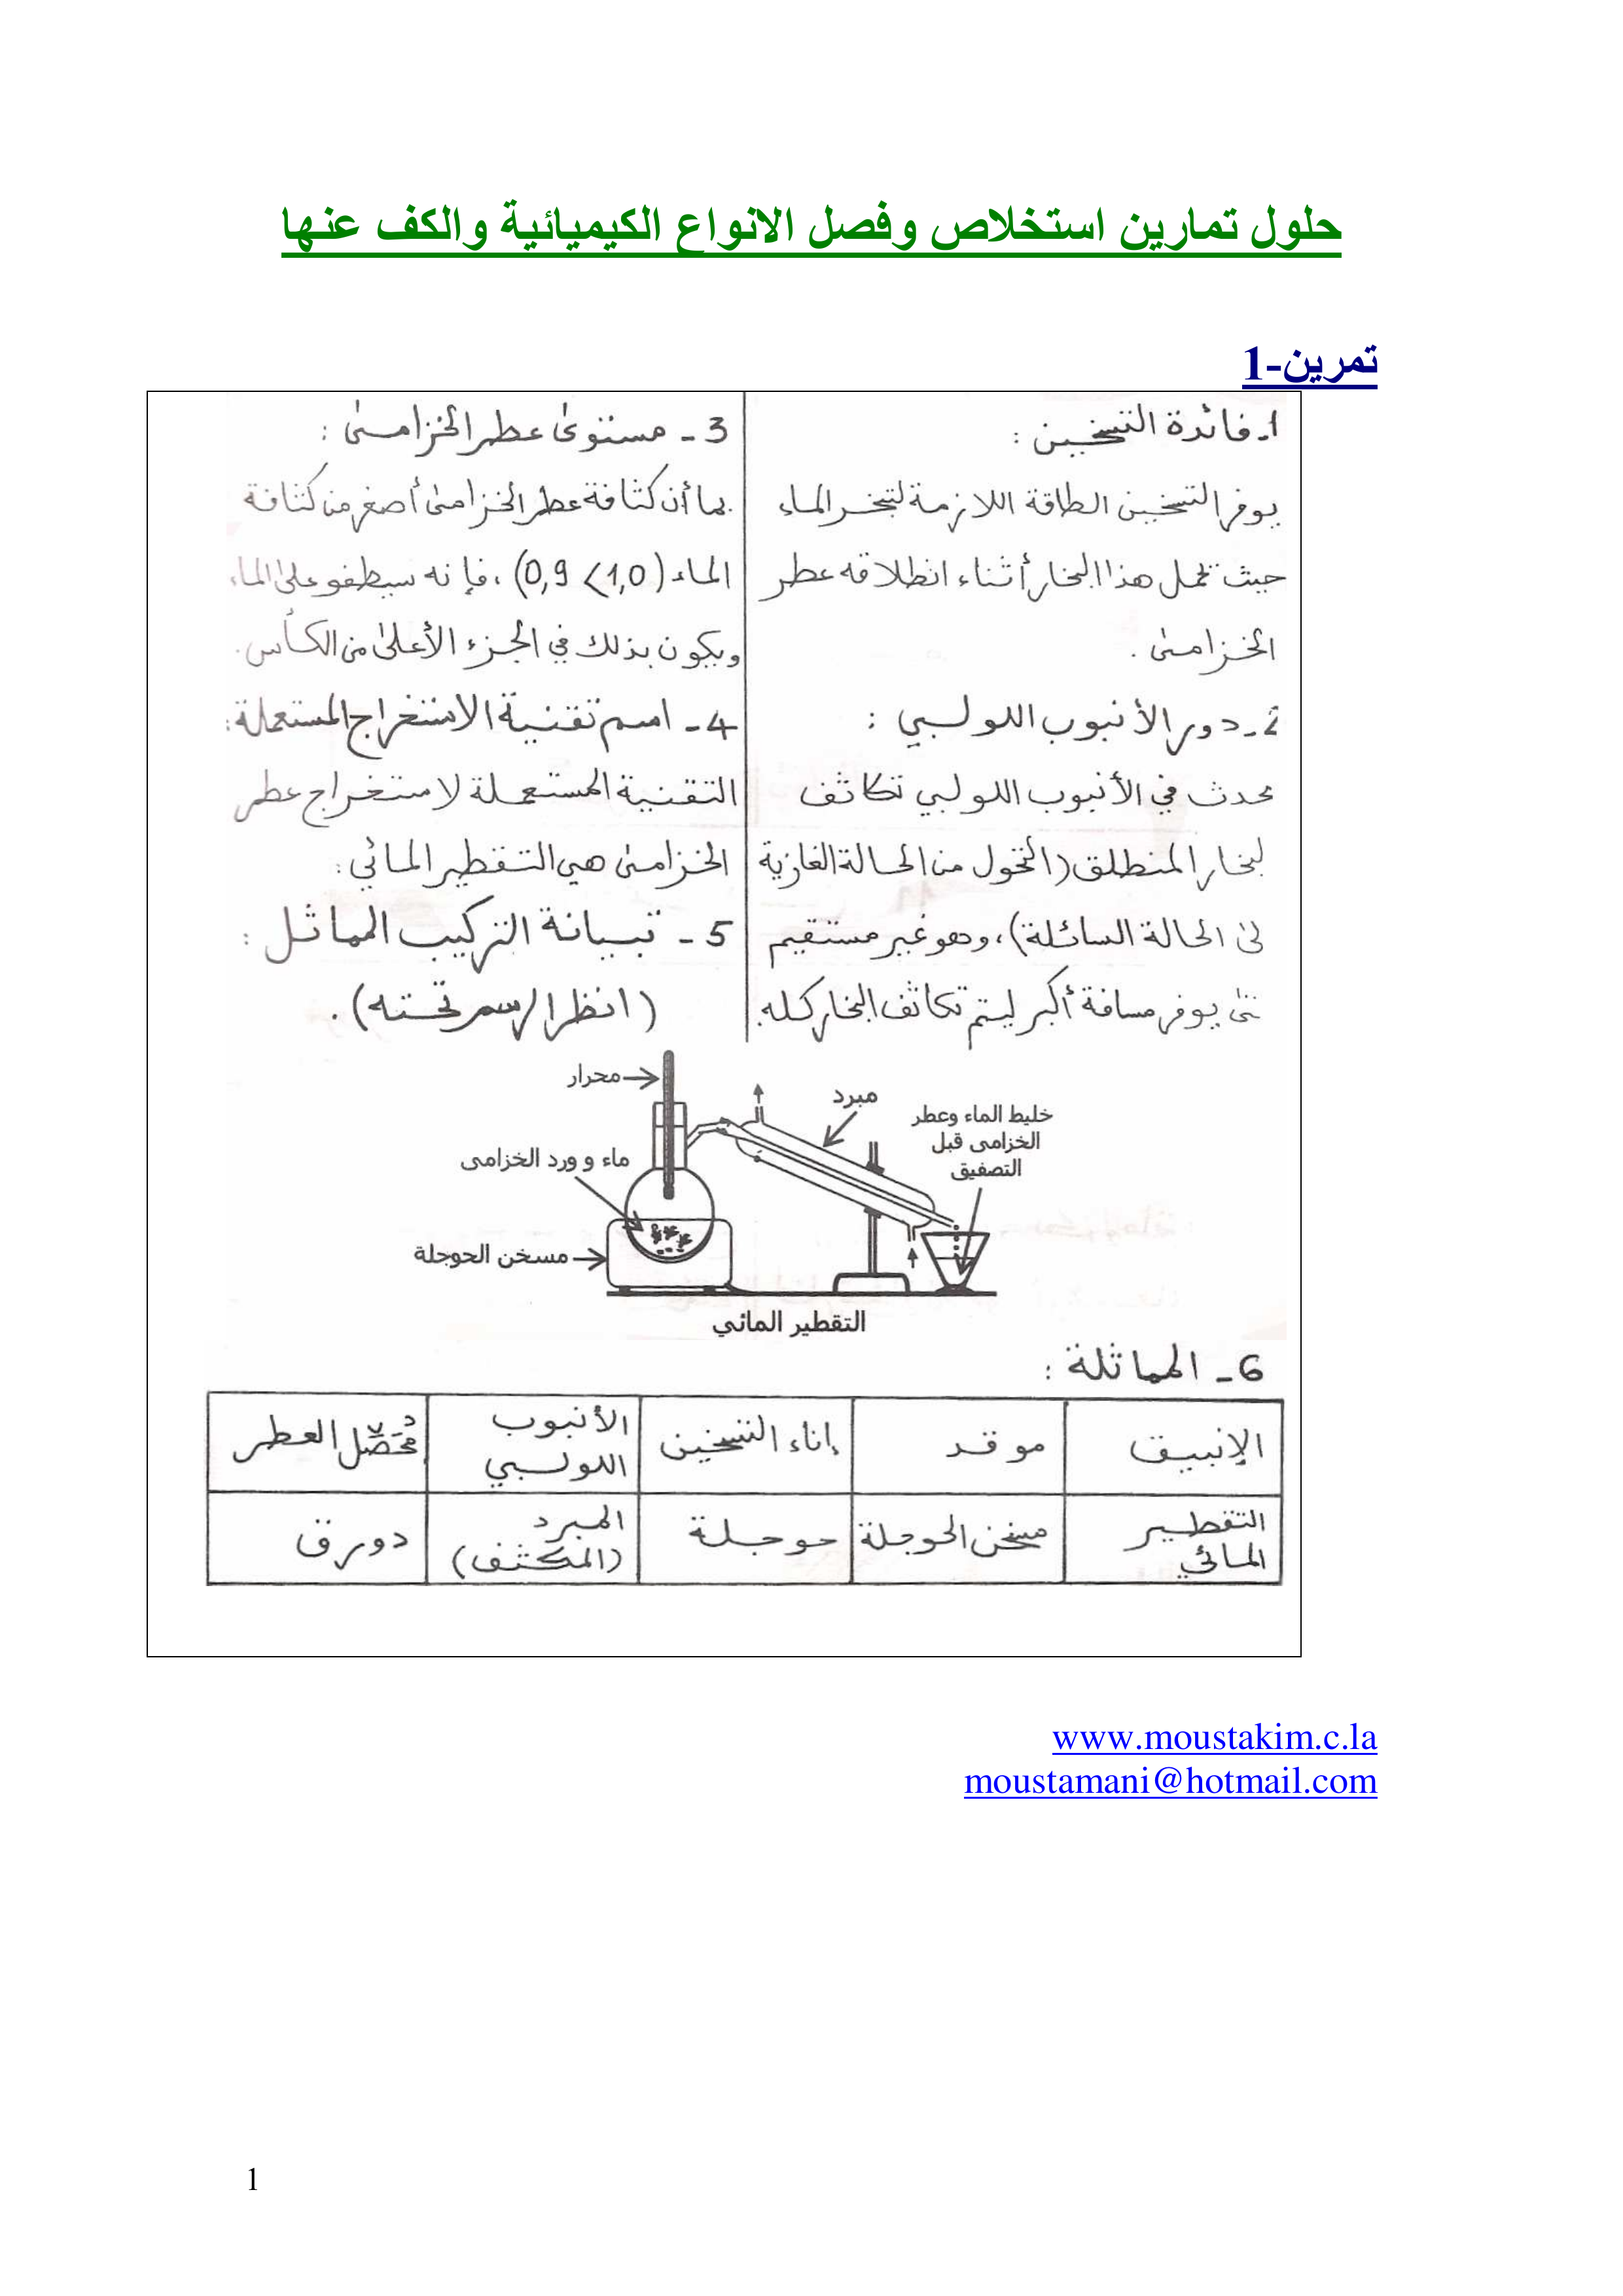 حلول تمارين استخلاص وفصل الانواع الكيميائية والكف عنها
تمرين-1
1- فائدة التسخين :
يوفر التسخين الطاقة اللازمة لتبخر الماء
حيث تحمل هذا البخار أثناء انطلاقه عطر
الخزامى .
2- دور الأنبوب اللولبي :
يحدث في الأنبوب اللولبي تكاثف
لبخار المنطلق (التحول من الحالة الغازية
لى الحالة السائلة)، وهو غير مستقيم
تى يوفر مسافة أكبر ليتم تكاثف البخار كله.
3 - مستوى عطر الخزامى :
بما أن كثافة عطر الخزامى أصغر من كثافة
الماء (0,9 < 1,0) ، فإنه سيطفو على الماء
ويكون بذلك في الجزء الأعلى من الكأس .
4 - اسم تقنية الاستخراج المستعملة :
التقنية المستعملة لاستخراج عطر
الخزامى هي التقطير المائي .
5 - تبيانة التركيب المماثل :
(انظر الرسم تحته) .
محرار
مبرد
خليط الماء وعطر
الخزامى قبل
التصفيق
ماء و ورد الخزامى
مسخن الحوجلة
التقطير المائي
6 - المماثلة :
الإنبيق موقد إناء التسخين الأنبوب اللولبي مُحَصِّل العطر
التقطير المائي مسخن الحوجلة حوجلة المبرد (المكثف) دورق
www.moustakim.c.la
moustamani@hotmail.com
1